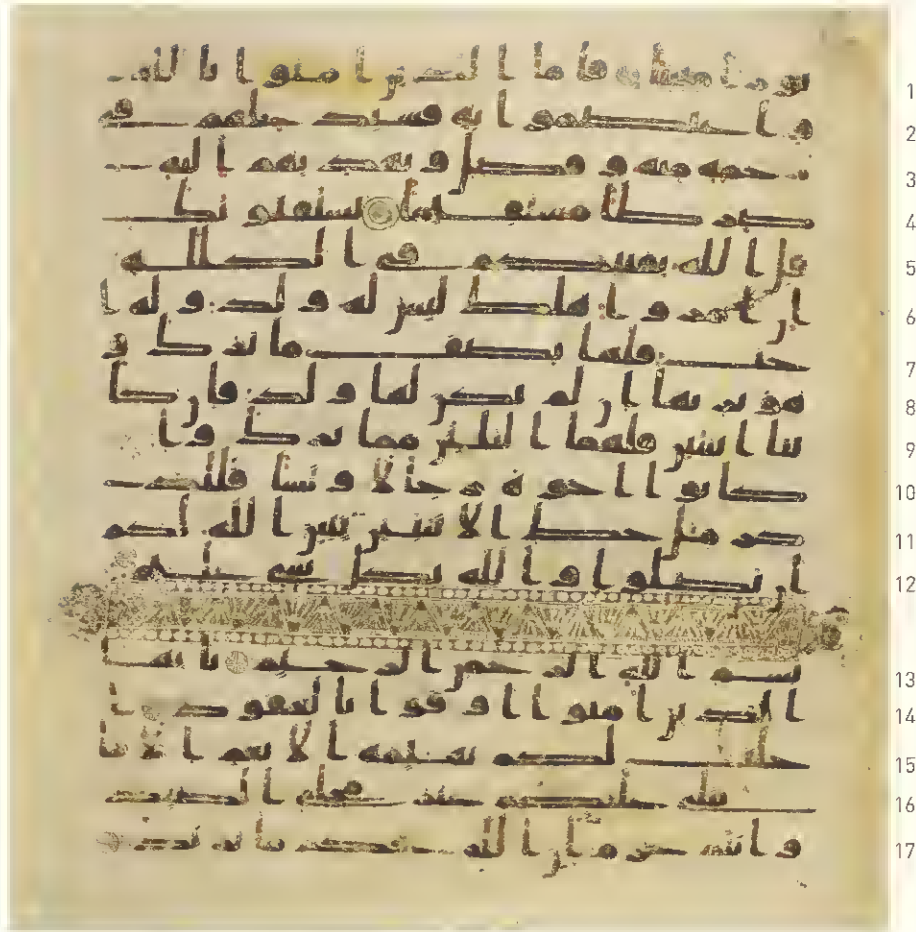 نورا مبينا فاما الذين امنوا بالله 1
واعتصموا به فسيدخلهم في 2
رحمه منه وفضل ويهديهم اليه 3
صرطا مستقيما يستفتونك 4
قل الله يفتيكم في الكلله 5
ان امروا هلك ليس له ولد وله ا 6
خت فلها نصف ما ترك و 7
هو يرثها ان لم يكن لها ولد فان كا 8
نتا اثنتين فلهما الثلثن مما ترك وان 9
كانوا اخوه رجالا ونسا فللذ 10
كر مثل حظ الانثيين يبين الله لكم 11
ان تضلوا والله بكل شي عليم 12
بسم الله الرحمن الرحيم يايها 13
الذين امنوا اوفوا بالعقود ا 14
حلت لكم بهيمه الانعم الا ما 15
يتلى عليكم غير محلي الصيد 16
وانتم حرم ان الله يحكم ما يريد 17